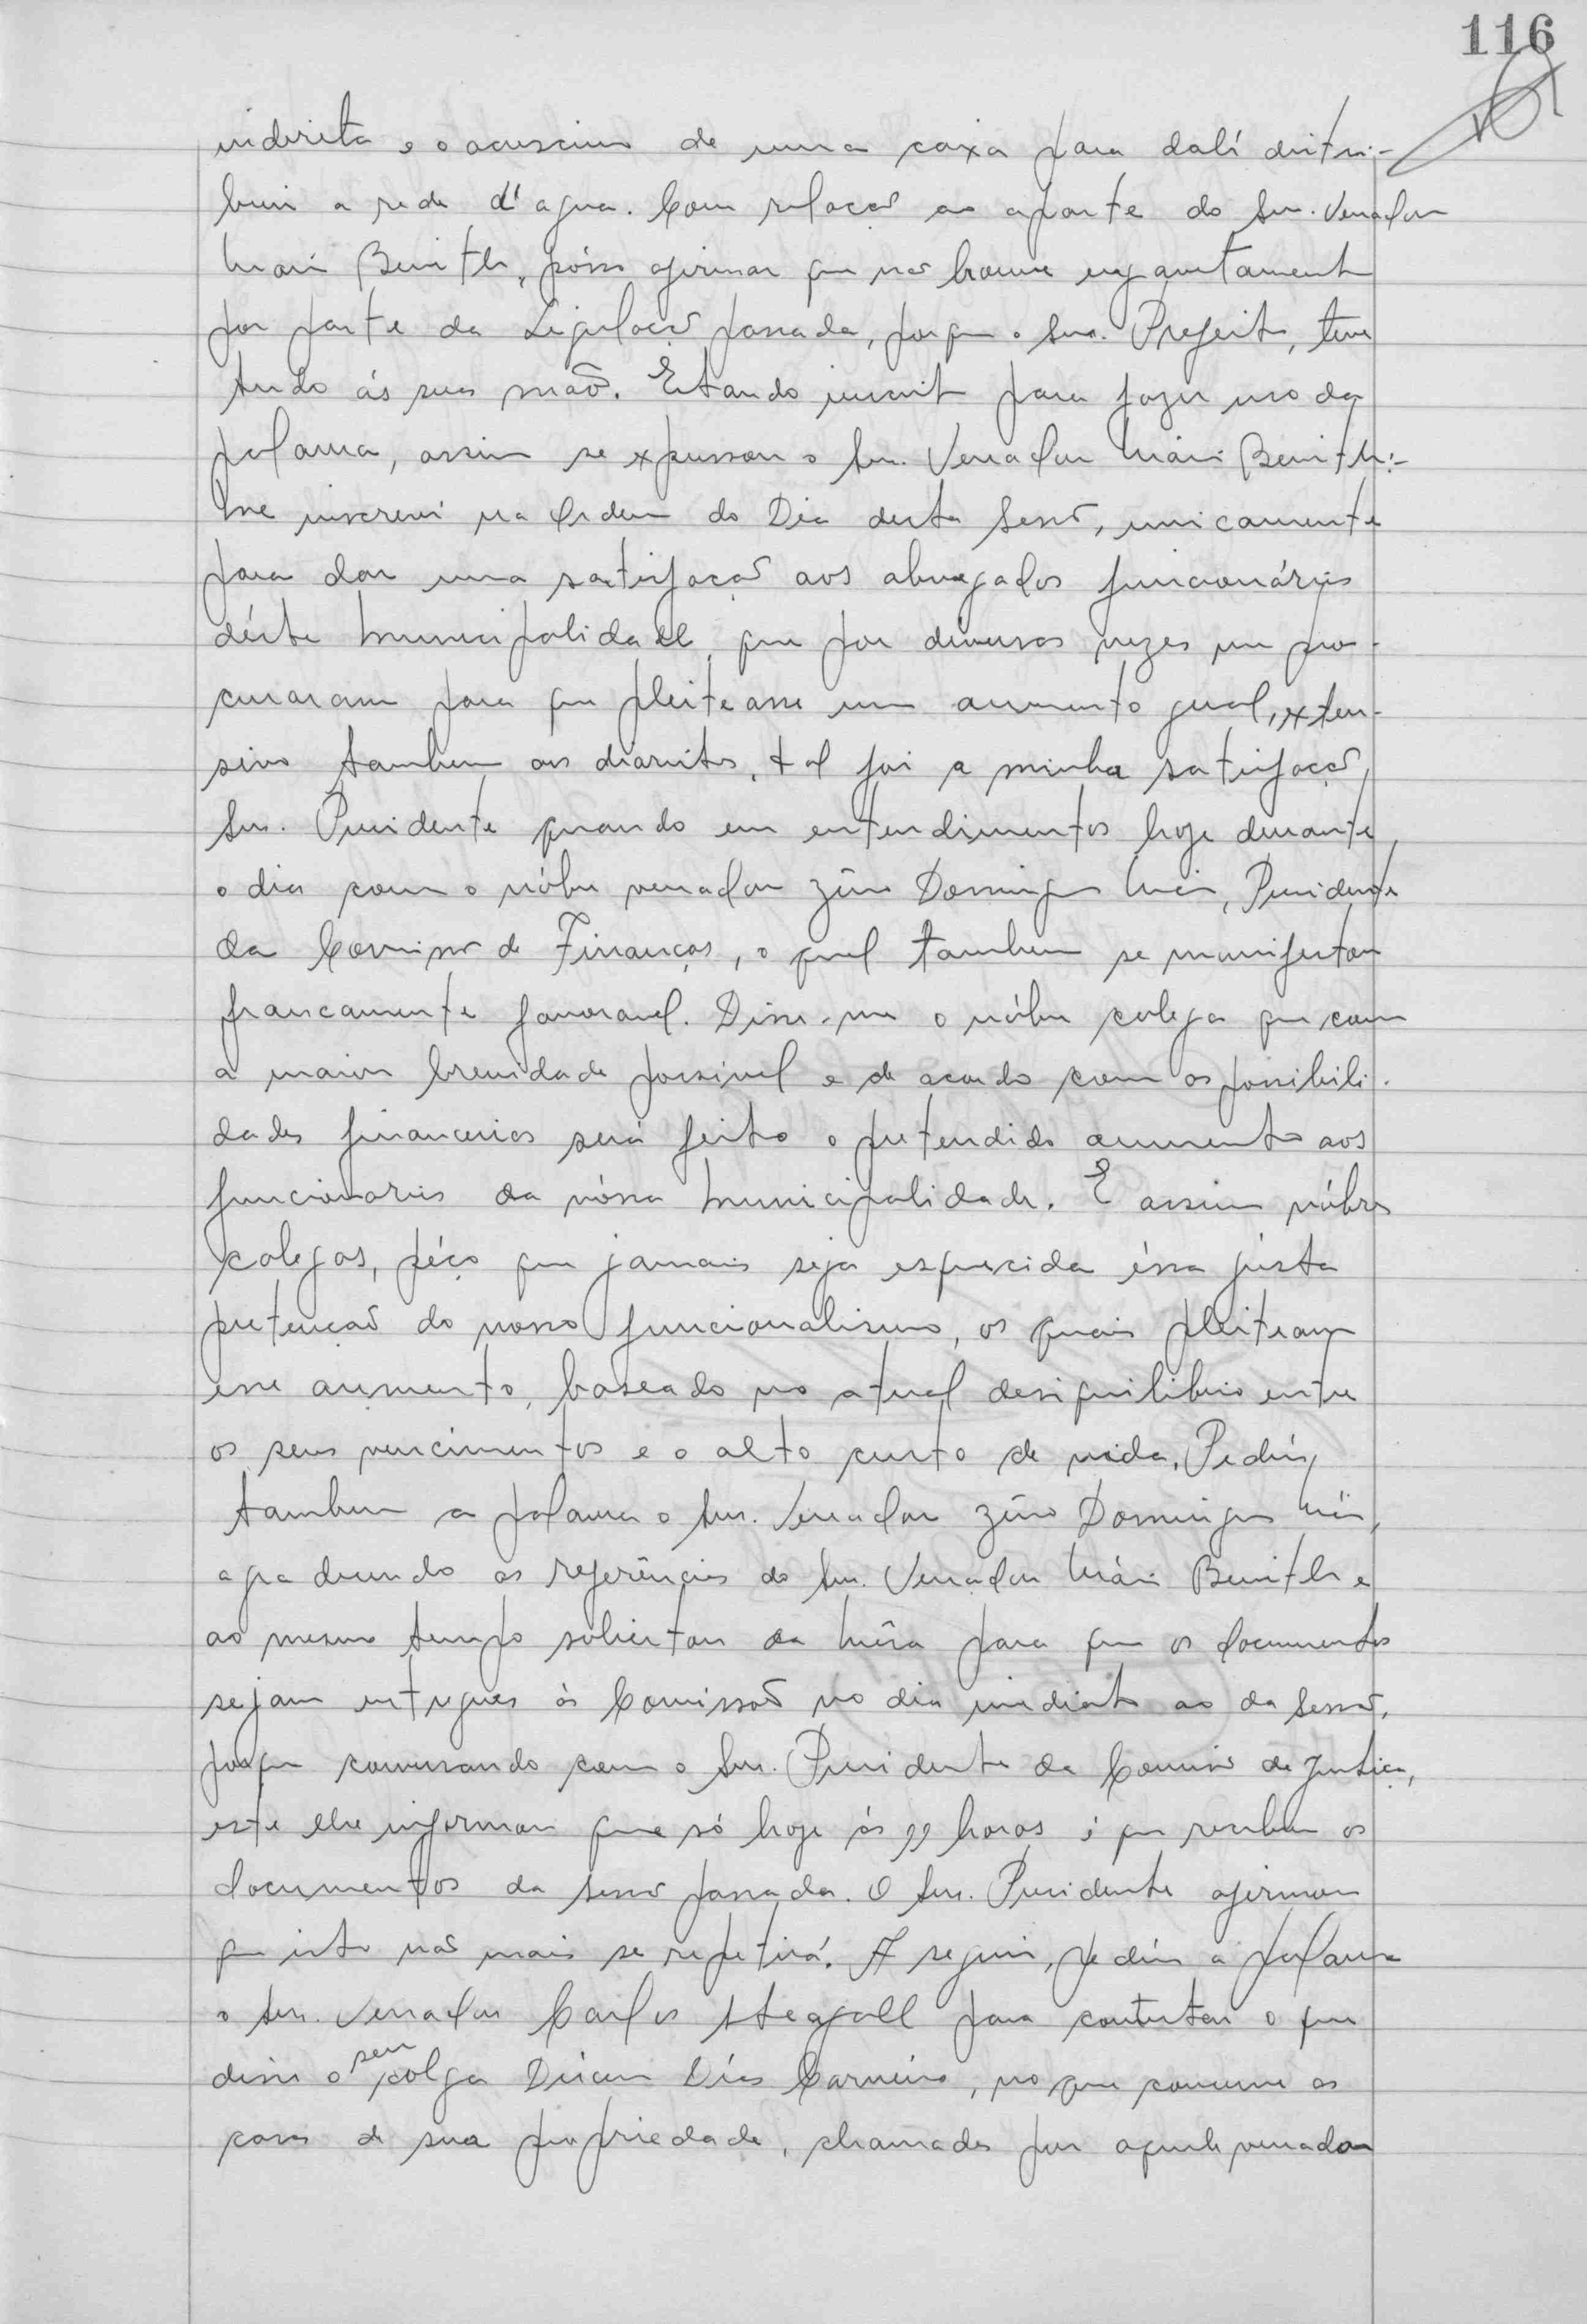 116
indireta e o acrescimo de uma caixa para dalí distri-
buir a rede d'agua. Com relação ao aparte do Snr. Vereador
Mario Benith, pósso afirmar que não houve engavetamento
por parte da Legislação passada, porque o Snr. Prefeito, teve
tudo ás suas mãos. Estando inscrito para fazer uso da
palavra, assim se expressou o Snr. Vereador Mário Benith:-
Me inscrevi na Ordem do Dia desta Sessão, unicamente
para dar uma satisfação aos abnegados funcionários
désta Municipalidade, que por diversas vezes me pro-
curaram para que pleiteasse um aumento geral, exten-
sivo tambem aos diaristas, tal foi a minha satisfação,
Snr. Presidente quando em entendimentos hoje durante
o dia com o nóbre vereador Domingos, Presidente
da Comissão de Finanças, o qual tambem se manifestou
francamente favoravel. Disse-me o nóbre colega que com
a maior brevidade possivel e de acordo com as possibili-
dades financeiras será feito o pretendido aumento aos
funcionarios da nóssa Municipalidade. E assim nóbres
colegas, péço que jamais seja esquecida éssa justa
pretenção do nosso funcionalismo, os quais pleiteam
esse aumento, baseado no atual desiquilibrio entre
os seus vencimentos e o alto custo de vida. Pediu
tambem a palavra o Snr. Vereador Domingos,
agradecendo as referências do Snr. Vereador Mário Benith e
ao mesmo tempo solicitou da Mêsa para que os documentos
sejam entregues ás Comissões no dia imediato ao da Sessão,
porque conversando com o Snr. Presidente da Comissão de Justiça,
este lhe informou que só hoje ás horas é que recebeu os
documentos da sessão passada. O Snr. Presidente afirmou
que isto não mais se repetirá. A seguir, pediu a palavra
o Snr. Vereador Carlos Steagall para contestar o que
disse o seu colega Dias Carneiro, no que concerne as
casas de sua propriedade, chamadas por aquele vereador